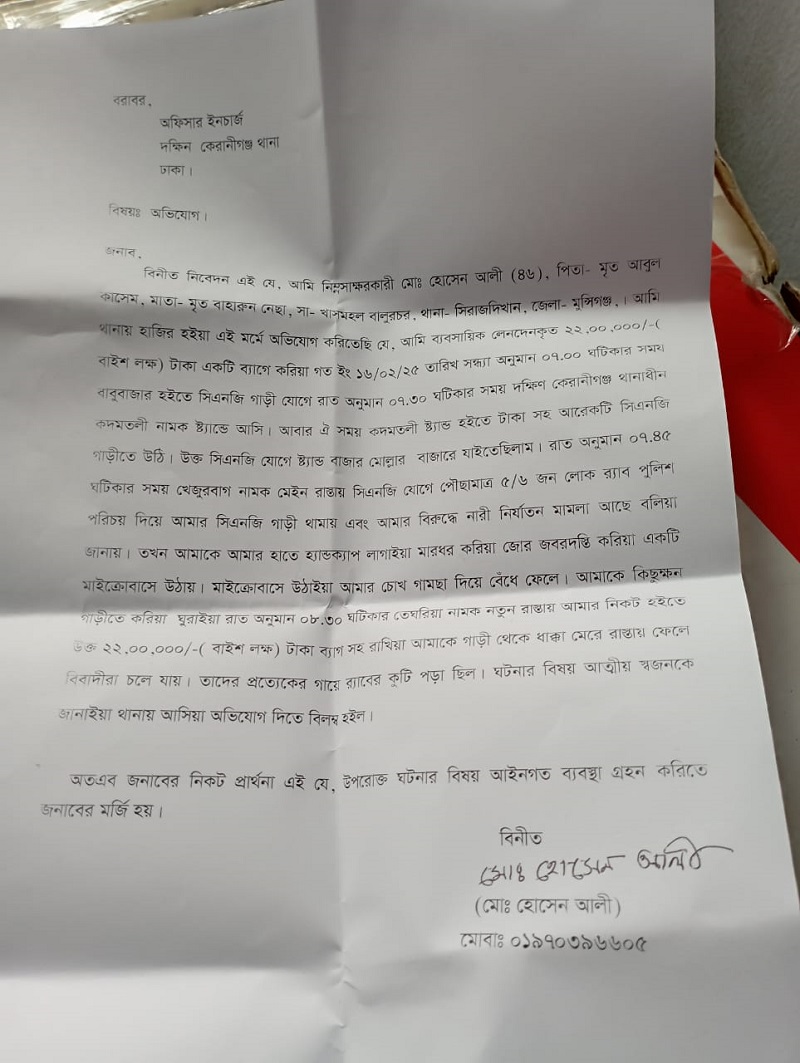 বরাবর,
অফিসার ইনচার্জ
দক্ষিন কেরানীগঞ্জ থানা
ঢাকা।
বিষয়ঃ অভিযোগ।
জনাব,
বিনীত নিবেদন এই যে, আমি নিম্নসাক্ষরকারী মোঃ হোসেন আলী (৪৬), পিতা- মৃত আবুল
কাসেম, মাতা- মৃত বাহারুন নেছা, সা- খাসমহল বালুরচর, থানা- সিরাজদিখান, জেলা- মুন্সিগঞ্জ,। আমি
থানায় হাজির হইয়া এই মর্মে অভিযোগ করিতেছি যে, আমি ব্যবসায়িক লেনদেনকৃত ২২,০০,০০০/-(
বাইশ লক্ষ) টাকা একটি ব্যাগে করিয়া গত ইং ১৬/০২/২৫ তারিখ সন্ধ্যা অনুমান ০৭.০০ ঘটিকার সময়
বাবুবাজার হইতে সিএনজি গাড়ী যোগে রাত অনুমান ০৭.৩০ ঘটিকার সময় দক্ষিণ কেরানীগঞ্জ থানাধীন
কদমতলী নামক ষ্ট্যান্ডে আসি। আবার ঐ সময় কদমতলী ষ্ট্যান্ড হইতে টাকা সহ আরেকটি সিএনজি
গাড়ীতে উঠি। উক্ত সিএনজি যোগে ষ্ট্যান্ড বাজার মোল্লার বাজারে যাইতেছিলাম। রাত অনুমান ০৭.৪৫
ঘটিকার সময় খেজুরবাগ নামক মেইন রাস্তায় সিএনজি যোগে পৌছামাত্র ৫/৬ জন লোক র‍্যাব পুলিশ
পরিচয় দিয়ে আমার সিএনজি গাড়ী থামায় এবং আমার বিরুদ্ধে নারী নির্যাতন মামলা আছে বলিয়া
জানায়। তখন আমাকে আমার হাতে হ্যান্ডক্যাপ লাগাইয়া মারধর করিয়া জোর জবরদস্তি করিয়া একটি
মাইক্রোবাসে উঠায়। মাইক্রোবাসে উঠাইয়া আমার চোখ গামছা দিয়ে বেঁধে ফেলে। আমাকে কিছুক্ষন
গাড়ীতে করিয়া ঘুরাইয়া রাত অনুমান ০৮.৩০ ঘটিকার তেঘরিয়া নামক নতুন রাস্তায় আমার নিকট হইতে
উক্ত ২২,০০,০০০/-( বাইশ লক্ষ) টাকা ব্যাগ সহ রাখিয়া আমাকে গাড়ী থেকে ধাক্কা মেরে রাস্তায় ফেলে
বিবাদীরা চলে যায়। তাদের প্রত্যেকের গায়ে র‍্যাবের কুটি পড়া ছিল। ঘটনার বিষয় আত্মীয় স্বজনকে
জানাইয়া থানায় আসিয়া অভিযোগ দিতে বিলম্ব হইল।
অতএব জনাবের নিকট প্রার্থনা এই যে, উপরোক্ত ঘটনার বিষয় আইনগত ব্যবস্থা গ্রহন করিতে
জনাবের মর্জি হয়।
বিনীত
মোঃ হোসেন আলী
(মোঃ হোসেন আলী)
মোবাঃ ০১৯৭০৩৯৬৬০৫